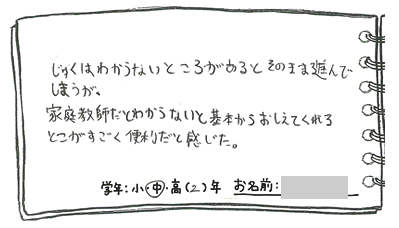 じゅくは、わからないところがあるとそのまま進んで
しまうが、
家庭教師だとわからないと基本からおしえてくれる
とこがすごく便利だと感じた。
学年:小・中・高(2)年 お名前: